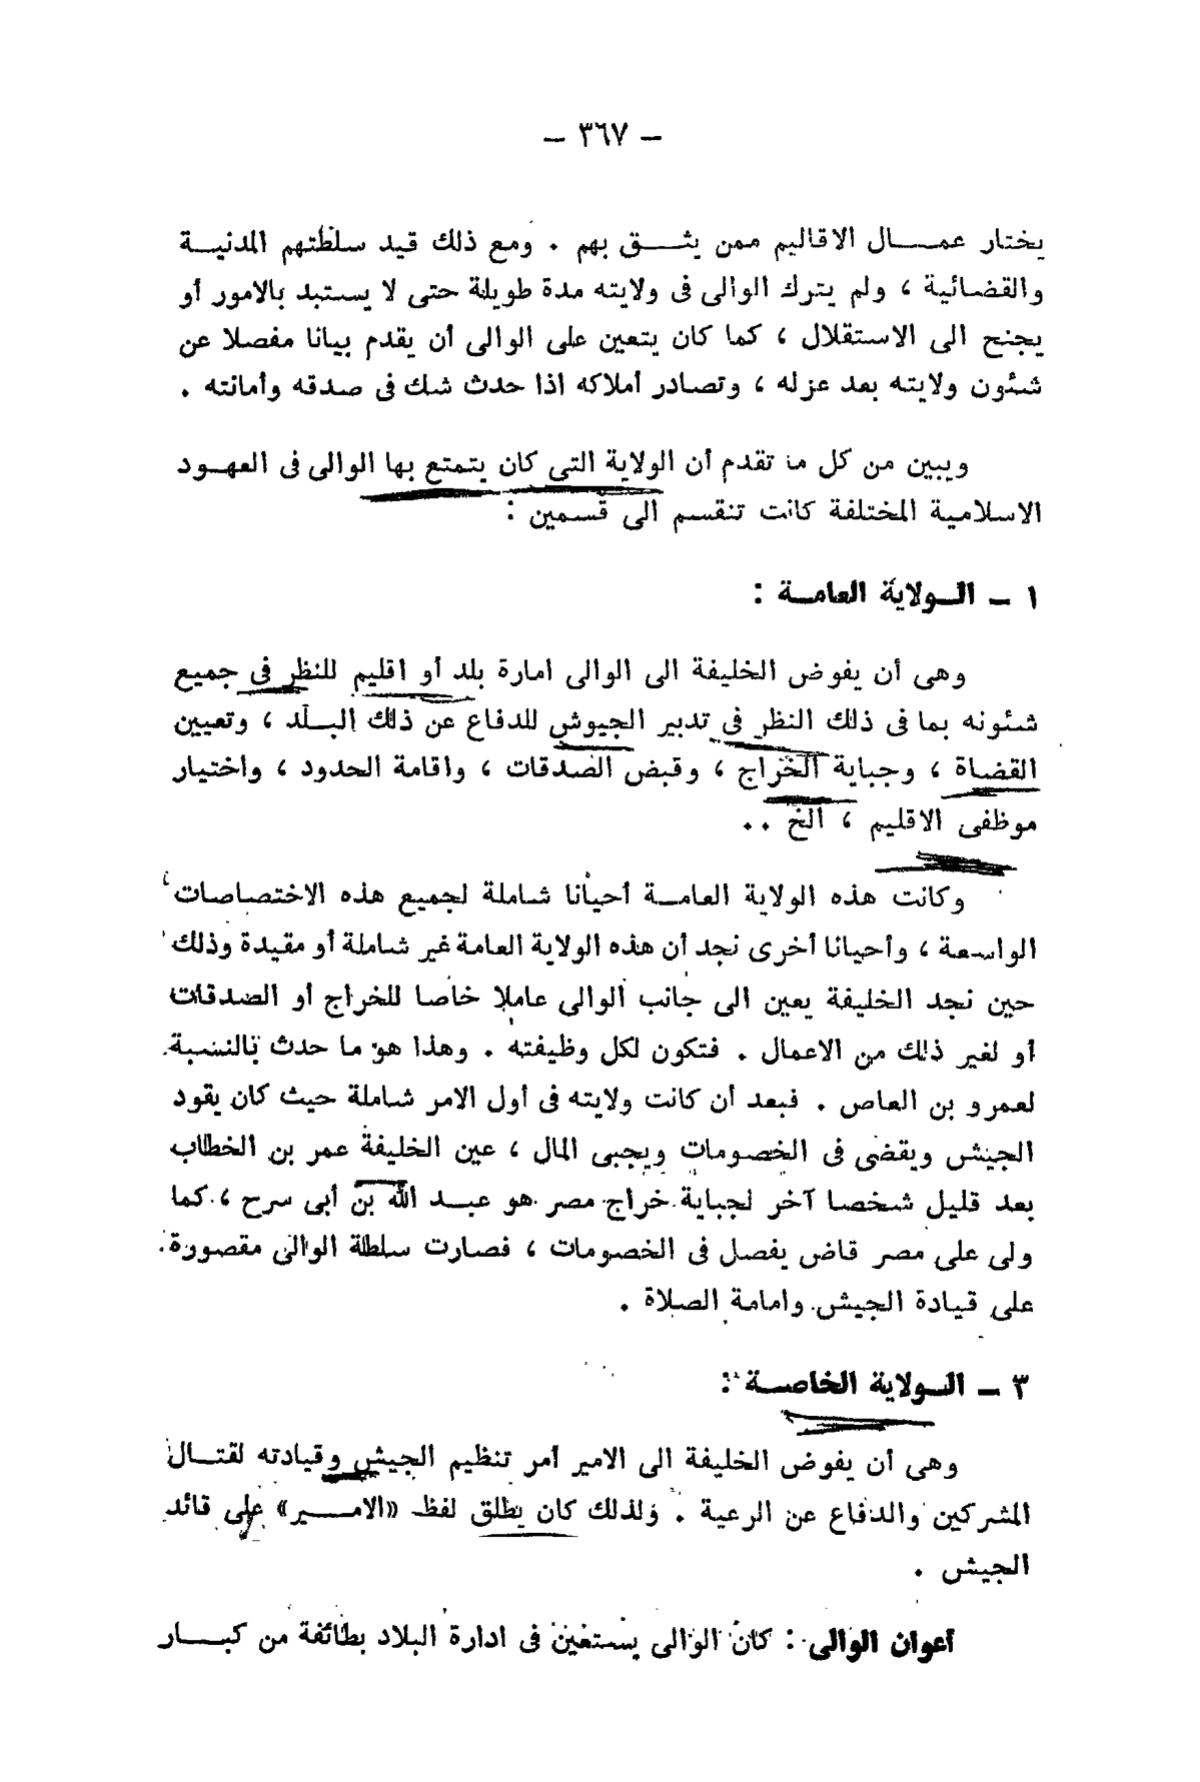 — ٣٦٧ —
يختار عمـــال الاقاليم ممن يثـــق بهم . ومع ذلك قيد سلطتهم المدنيــة
والقضائية ، ولم يترك الوالى فى ولايته مدة طويلة حتى لا يستبد بالامور أو
يجنح الى الاستقلال ، كما كان يتعين على الوالى أن يقدم بيانا مفصلا عن
شئون ولايته بعد عزله ، وتصادر أملاكه اذا حدث شك فى صدقه وأمانته .
ويبين من كل ما تقدم أن الولاية التى كان يتمتع بها الوالى فى العهــود
الاسلامية المختلفة كانت تنقسم الى قسمين :
١ – الــولاية العامــة :
وهى أن يفوض الخليفة الى الوالى امارة بلد أو اقليم للنظر فى جميع
شئونه بما فى ذلك النظر فى تدبير الجيوش للدفاع عن ذلك البــلد ، وتعيين
القضاة ، وجباية الخراج ، وقبض الصدقات ، واقامة الحدود ، واختيار
موظفى الاقليم ، الخ ..
وكانت هذه الولاية العامــة أحيانا شاملة لجميع هذه الاختصاصات
الواسعة ، وأحيانا أخرى نجد أن هذه الولاية العامة غير شاملة أو مقيدة وذلك
حين نجد الخليفة يعين الى جانب الوالى عاملا خاصا للخراج أو الصدقات
أو لغير ذلك من الاعمال . فتكون لكل وظيفته . وهذا هو ما حدث بالنسبة
لعمرو بن العاص . فبعد أن كانت ولايته فى أول الامر شاملة حيث كان يقود
الجيش ويقضى فى الخصومات ويجبى المال ، عين الخليفة عمر بن الخطاب
بعد قليل شخصا آخر لجباية خراج مصر هو عبــد الله بن أبى سرح ، كما
ولى على مصر قاض يفصل فى الخصومات ، فصارت سلطة الوالى مقصورة
على قيادة الجيش وامامة الصلاة .
٣ – الــولاية الخاصــة :
وهى أن يفوض الخليفة الى الامير أمر تنظيم الجيش وقيادته لقتــال
المشركين والدفاع عن الرعية . ولذلك كان يطلق لفظ «الامـــير» على قائد
الجيش .
أعوان الوالى : كان الوالى يستعين فى ادارة البلاد بطائفة من كبـــار